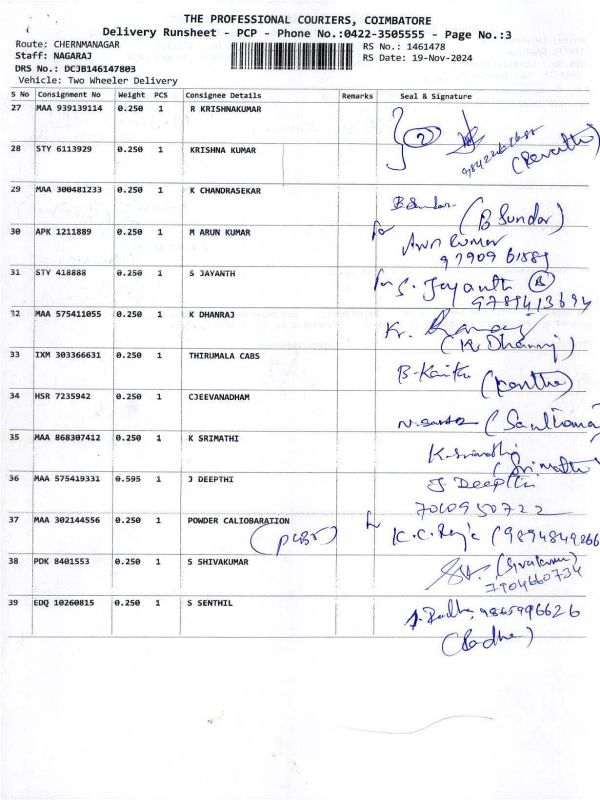 THE PROFESSIONAL COURIERS, COIMBATORE
Delivery Runsheet - PCP - Phone No.:0422-3505555 - Page No.:3
Route: CHERNMANAGAR
RS No.: 1461478
Staff: NAGARAJ
RS Date: 19-Nov-2024
DRS No.: DCJB146147803
Vehicle: Two Wheeler Delivery
S No Consignment No Weight PCS Consignee Details Remarks Seal & Signature
27 MAA 939139114 0.250 1 R KRISHNAKUMAR
(Revathi)
28 STY 6113929 0.250 1 KRISHNA KUMAR
29 MAA 300481233 0.250 1 K CHANDRASEKAR
B. Sundar (B Sundar)
30 APK 1211889 0.250 1 M ARUN KUMAR
for Arun Kumar
97909 61889
31 STY 418888 0.250 1 S JAYANTH
for S. Jayanth (B)
9789413694
32 MAA 575411055 0.250 1 K DHANRAJ
(K Dhanraj)
33 IXM 303366631 0.250 1 THIRUMALA CABS
34 HSR 7235942 0.250 1 CJEEVANADHAM
35 MAA 868307412 0.250 1 K SRIMATHI
K. Srimathi
(Srimathi)
36 MAA 575419331 0.595 1 J DEEPTHI
J. Deepthi
7010950722
37 MAA 302144556 0.250 1 POWDER CALIOBARATION
K.C. (9894849266
38 PDK 8401553 0.250 1 S SHIVAKUMAR
(Sivakumar)
7904660734
39 EDQ 10260815 0.250 1 S SENTHIL
9865996626
(Radha)